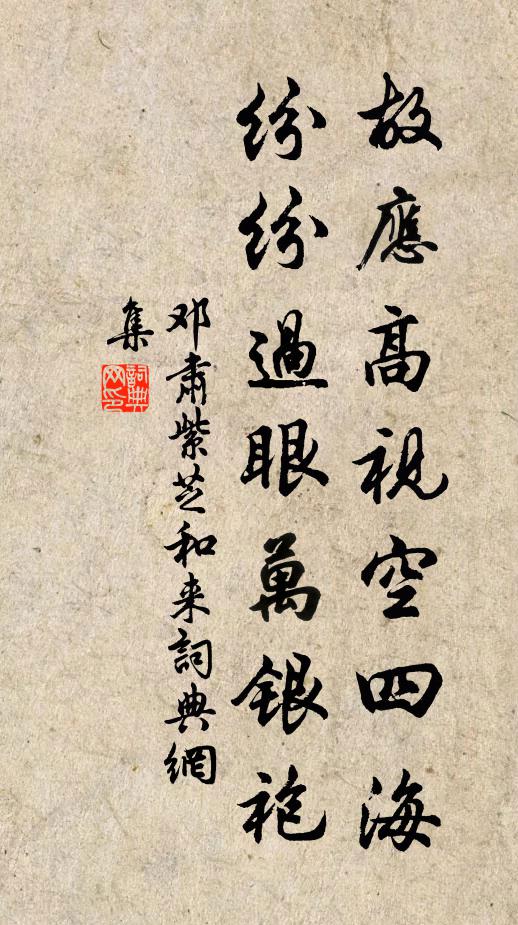 故應高視空四海
紛紛過眼萬銀袍
邓肅紫芝和来詞典網
集
詞典
网印